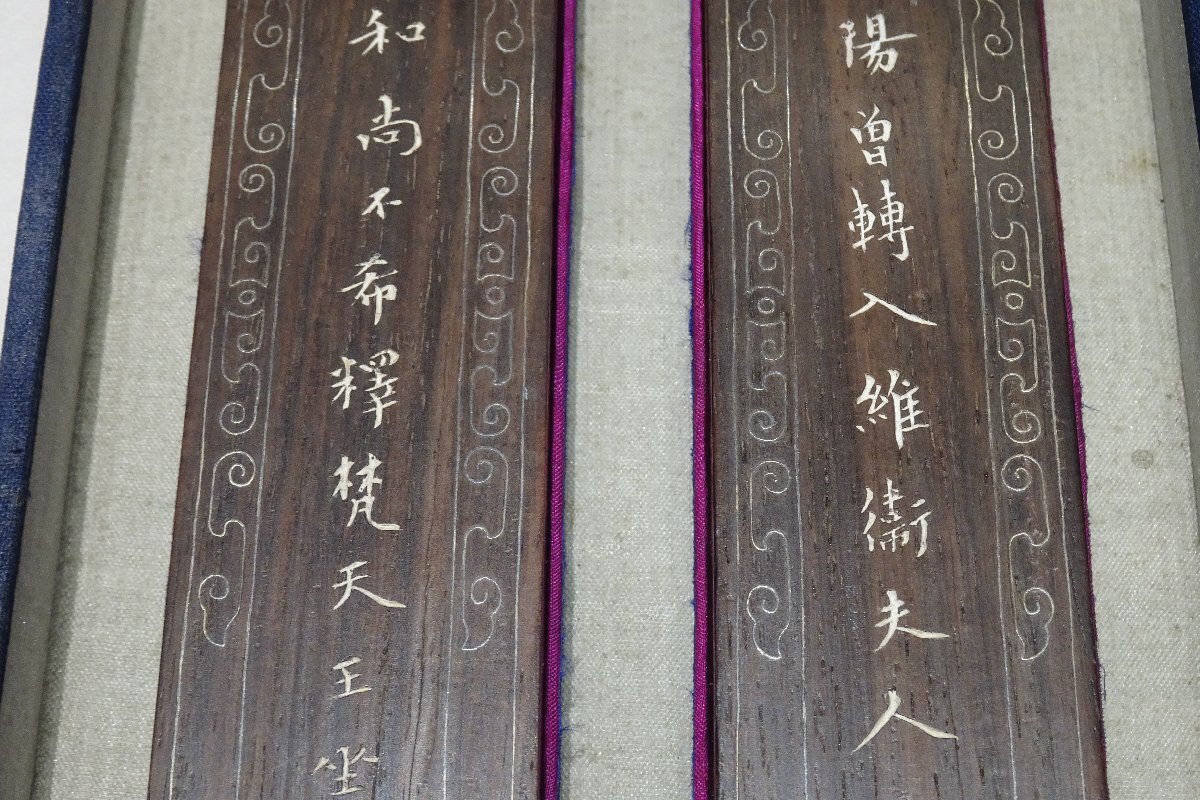 陽曾轉入維衞夫人
和尚不希釋梵天王坐